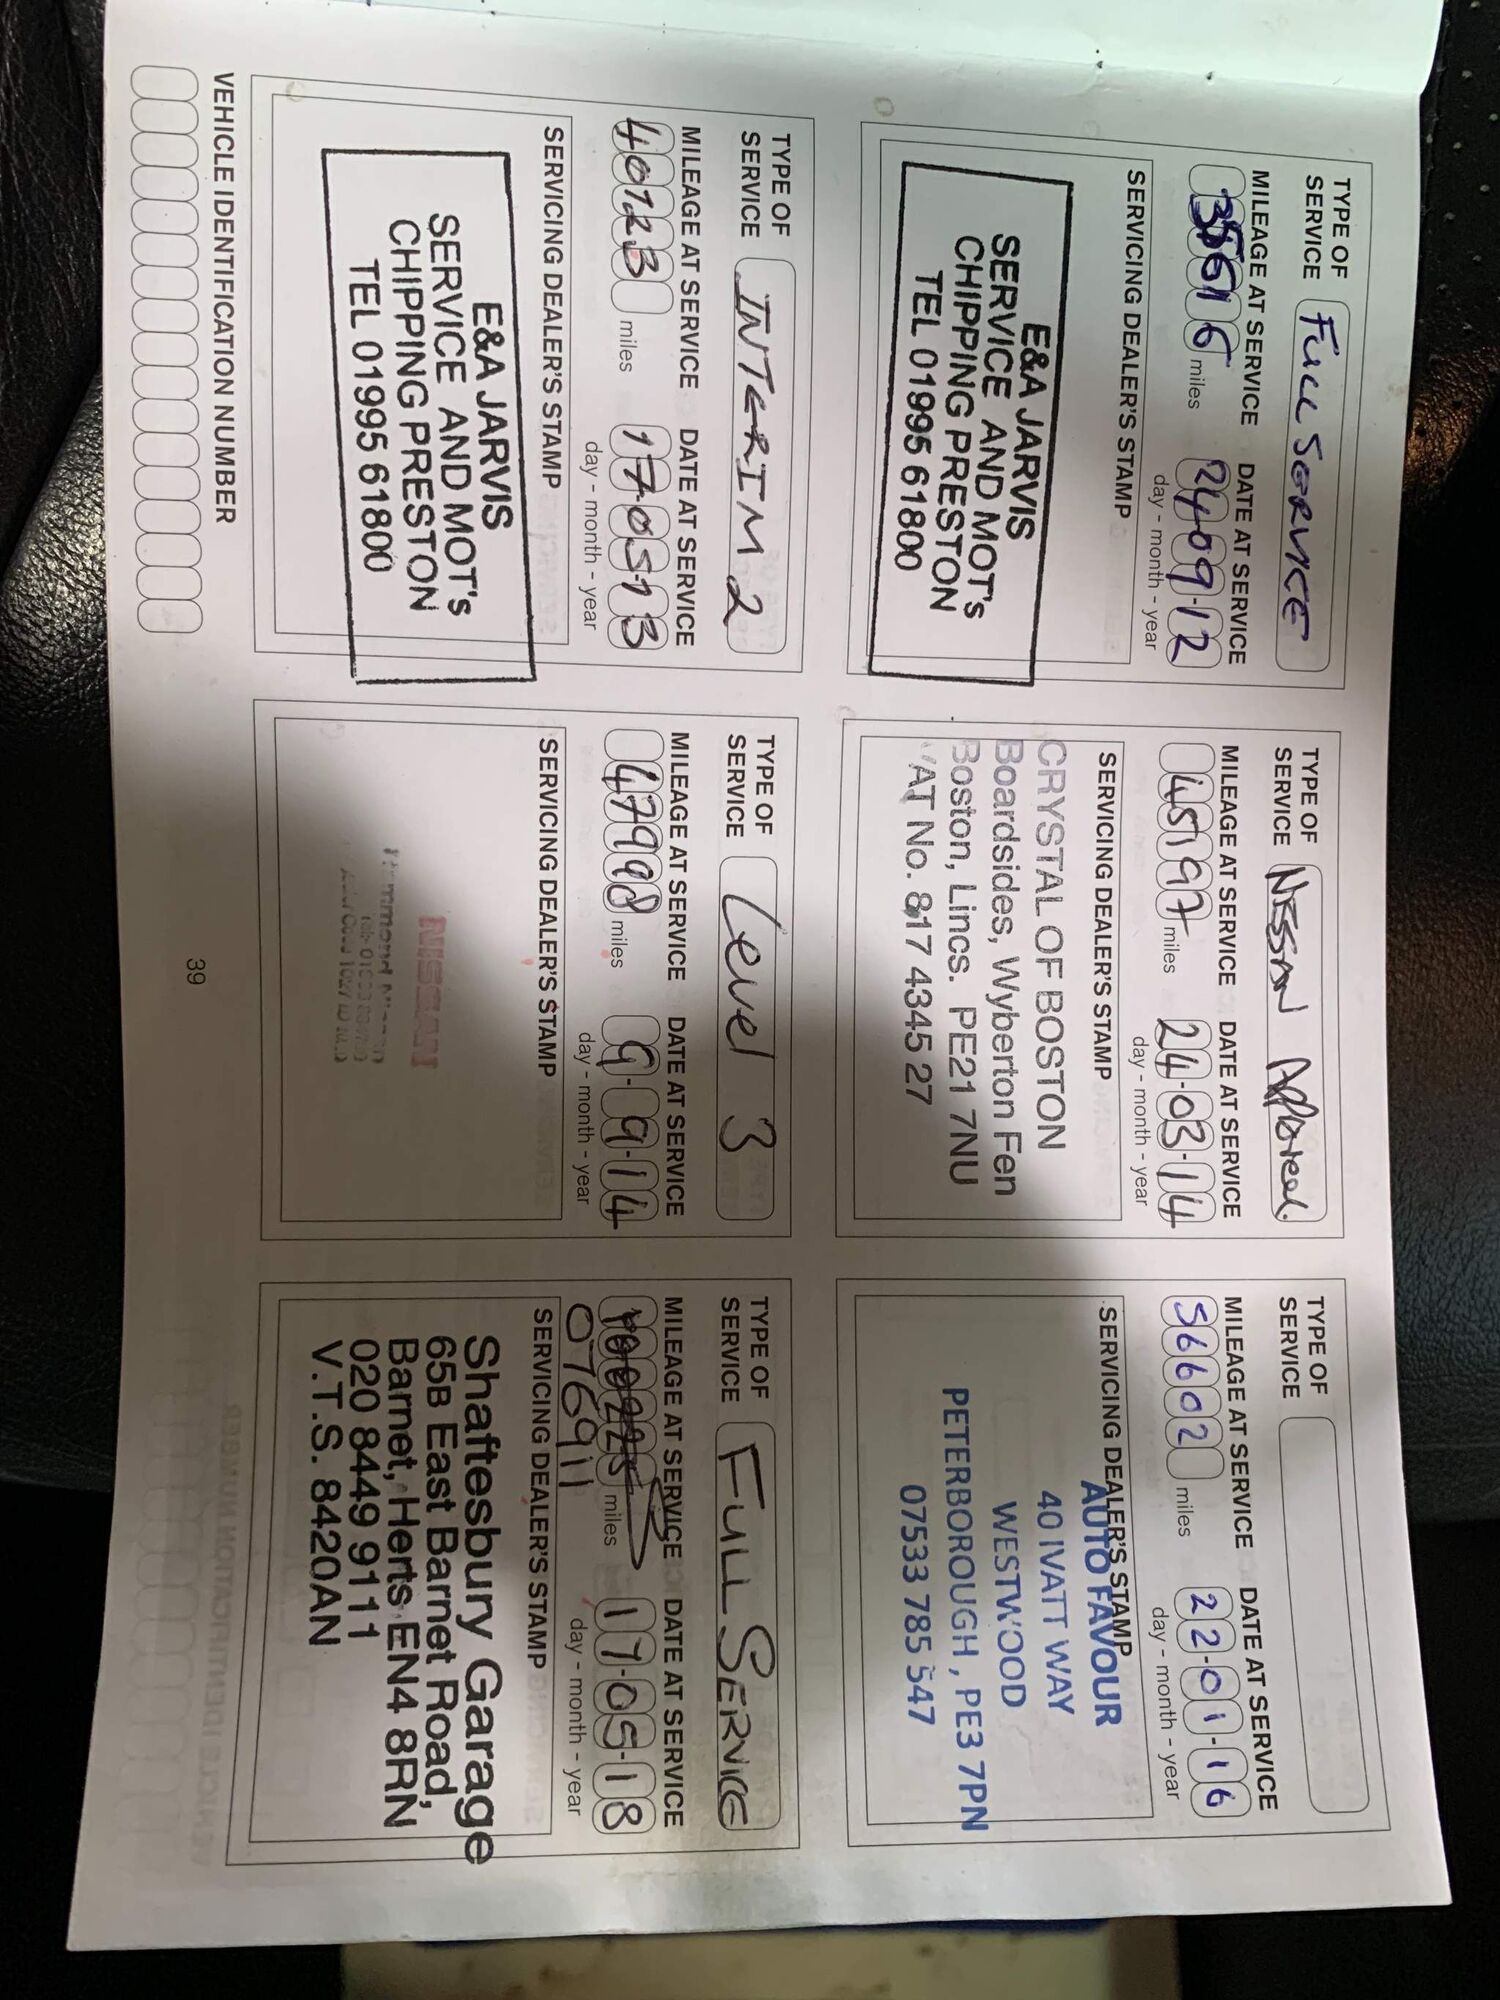 TYPE OF
SERVICE Full Service
MILEAGE AT SERVICE DATE AT SERVICE
miles 24-09-12
day - month - year
SERVICING DEALER'S STAMP
E&A JARVIS
SERVICE AND MOT's
CHIPPING PRESTON
TEL 01995 61800
TYPE OF
SERVICE NISSAN Approved.
MILEAGE AT SERVICE DATE AT SERVICE
45197 miles 24-03-14
day - month - year
SERVICING DEALER'S STAMP
CRYSTAL OF BOSTON
Boardsides, Wyberton Fen
Boston, Lincs. PE21 7NU
VAT No. 817 4345 27
TYPE OF
SERVICE
MILEAGE AT SERVICE DATE AT SERVICE
56602 miles 22-01-16
day - month - year
SERVICING DEALER'S STAMP
AUTO FAVOUR
40 IVATT WAY
WESTWOOD
PETERBOROUGH, PE3 7PN
07533 785 547
TYPE OF
SERVICE INTERIM 2
MILEAGE AT SERVICE DATE AT SERVICE
40123 miles 17-05-13
day - month - year
SERVICING DEALER'S STAMP
E&A JARVIS
SERVICE AND MOT's
CHIPPING PRESTON
TEL 01995 61800
TYPE OF
SERVICE Level 3
MILEAGE AT SERVICE DATE AT SERVICE
47998 miles 9-9-14
day - month - year
SERVICING DEALER'S STAMP
NISSAN
TYPE OF
SERVICE FULL SERVICE
MILEAGE AT SERVICE DATE AT SERVICE
miles 17-05-18
076911 day - month - year
SERVICING DEALER'S STAMP
Shaftesbury Garage
65B East Barnet Road,
Barnet, Herts, EN4 8RN
020 8449 9111
V.T.S. 8420AN
VEHICLE IDENTIFICATION NUMBER
39